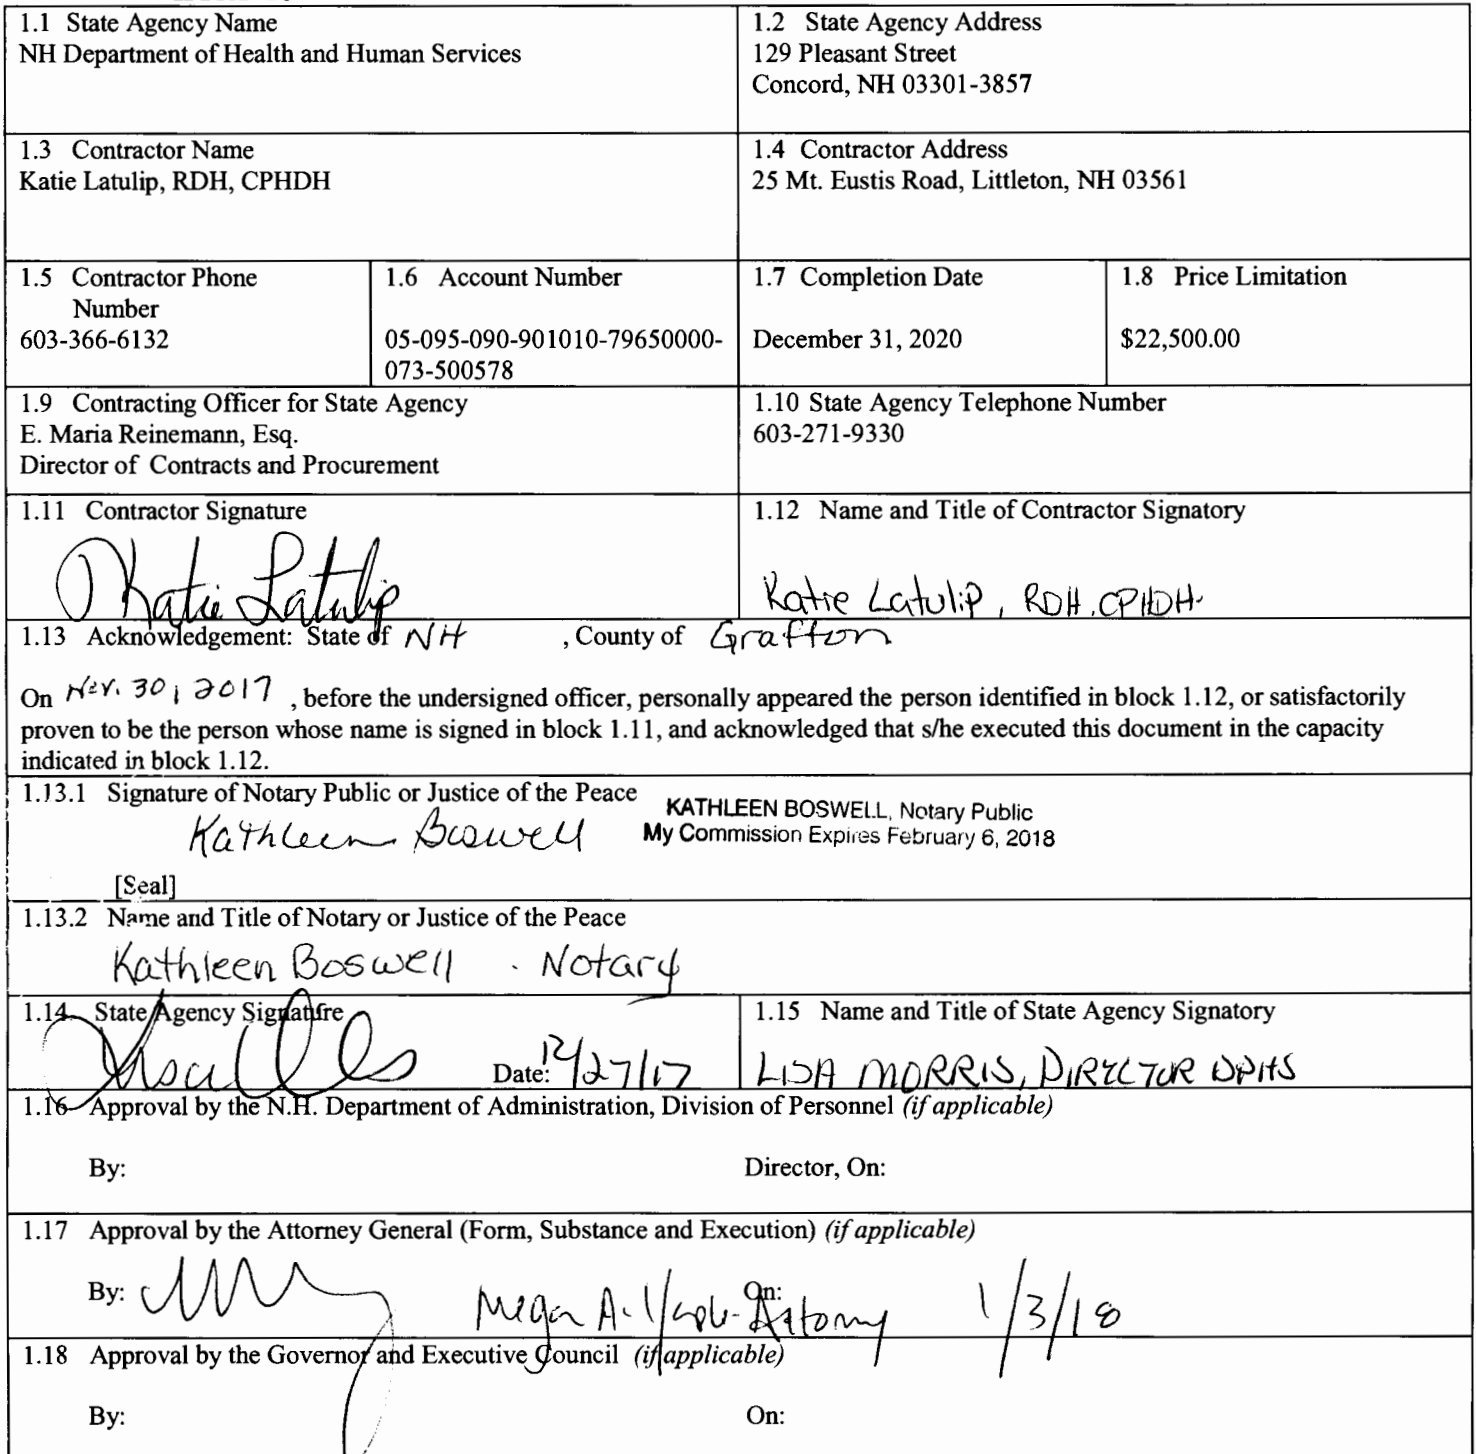 1.1 State Agency Name
NH Department of Health and Human Services
1.2 State Agency Address
129 Pleasant Street
Concord, NH 03301-3857
1.3 Contractor Name
Katie Latulip, RDH, CPHDH
1.4 Contractor Address
25 Mt. Eustis Road, Littleton, NH 03561
1.5 Contractor Phone
Number
603-366-6132
1.6 Account Number
05-095-090-901010-79650000-
073-500578
1.7 Completion Date
December 31, 2020
1.8 Price Limitation
$22,500.00
1.9 Contracting Officer for State Agency
E. Maria Reinemann, Esq.
Director of Contracts and Procurement
1.10 State Agency Telephone Number
603-271-9330
1.11 Contractor Signature
Katie Latulip
1.12 Name and Title of Contractor Signatory
Katie Latulip, RDH, CPHDH
1.13 Acknowledgement: State of NH , County of Grafton
On Nov. 30, 2017 , before the undersigned officer, personally appeared the person identified in block 1.12, or satisfactorily
proven to be the person whose name is signed in block 1.11, and acknowledged that s/he executed this document in the capacity
indicated in block 1.12.
1.13.1 Signature of Notary Public or Justice of the Peace
Kathleen Boswell
KATHLEEN BOSWELL, Notary Public
My Commission Expires February 6, 2018
[Seal]
1.13.2 Name and Title of Notary or Justice of the Peace
Kathleen Boswell . Notary
1.14 State Agency Signature
Date: 12/27/17
1.15 Name and Title of State Agency Signatory
LISA MORRIS, DIRECTOR DPHS
1.16 Approval by the N.H. Department of Administration, Division of Personnel (if applicable)
By:
Director, On:
1.17 Approval by the Attorney General (Form, Substance and Execution) (if applicable)
By: Megan A. - Attorney On: 1/3/18
1.18 Approval by the Governor and Executive Council (if applicable)
By:
On: